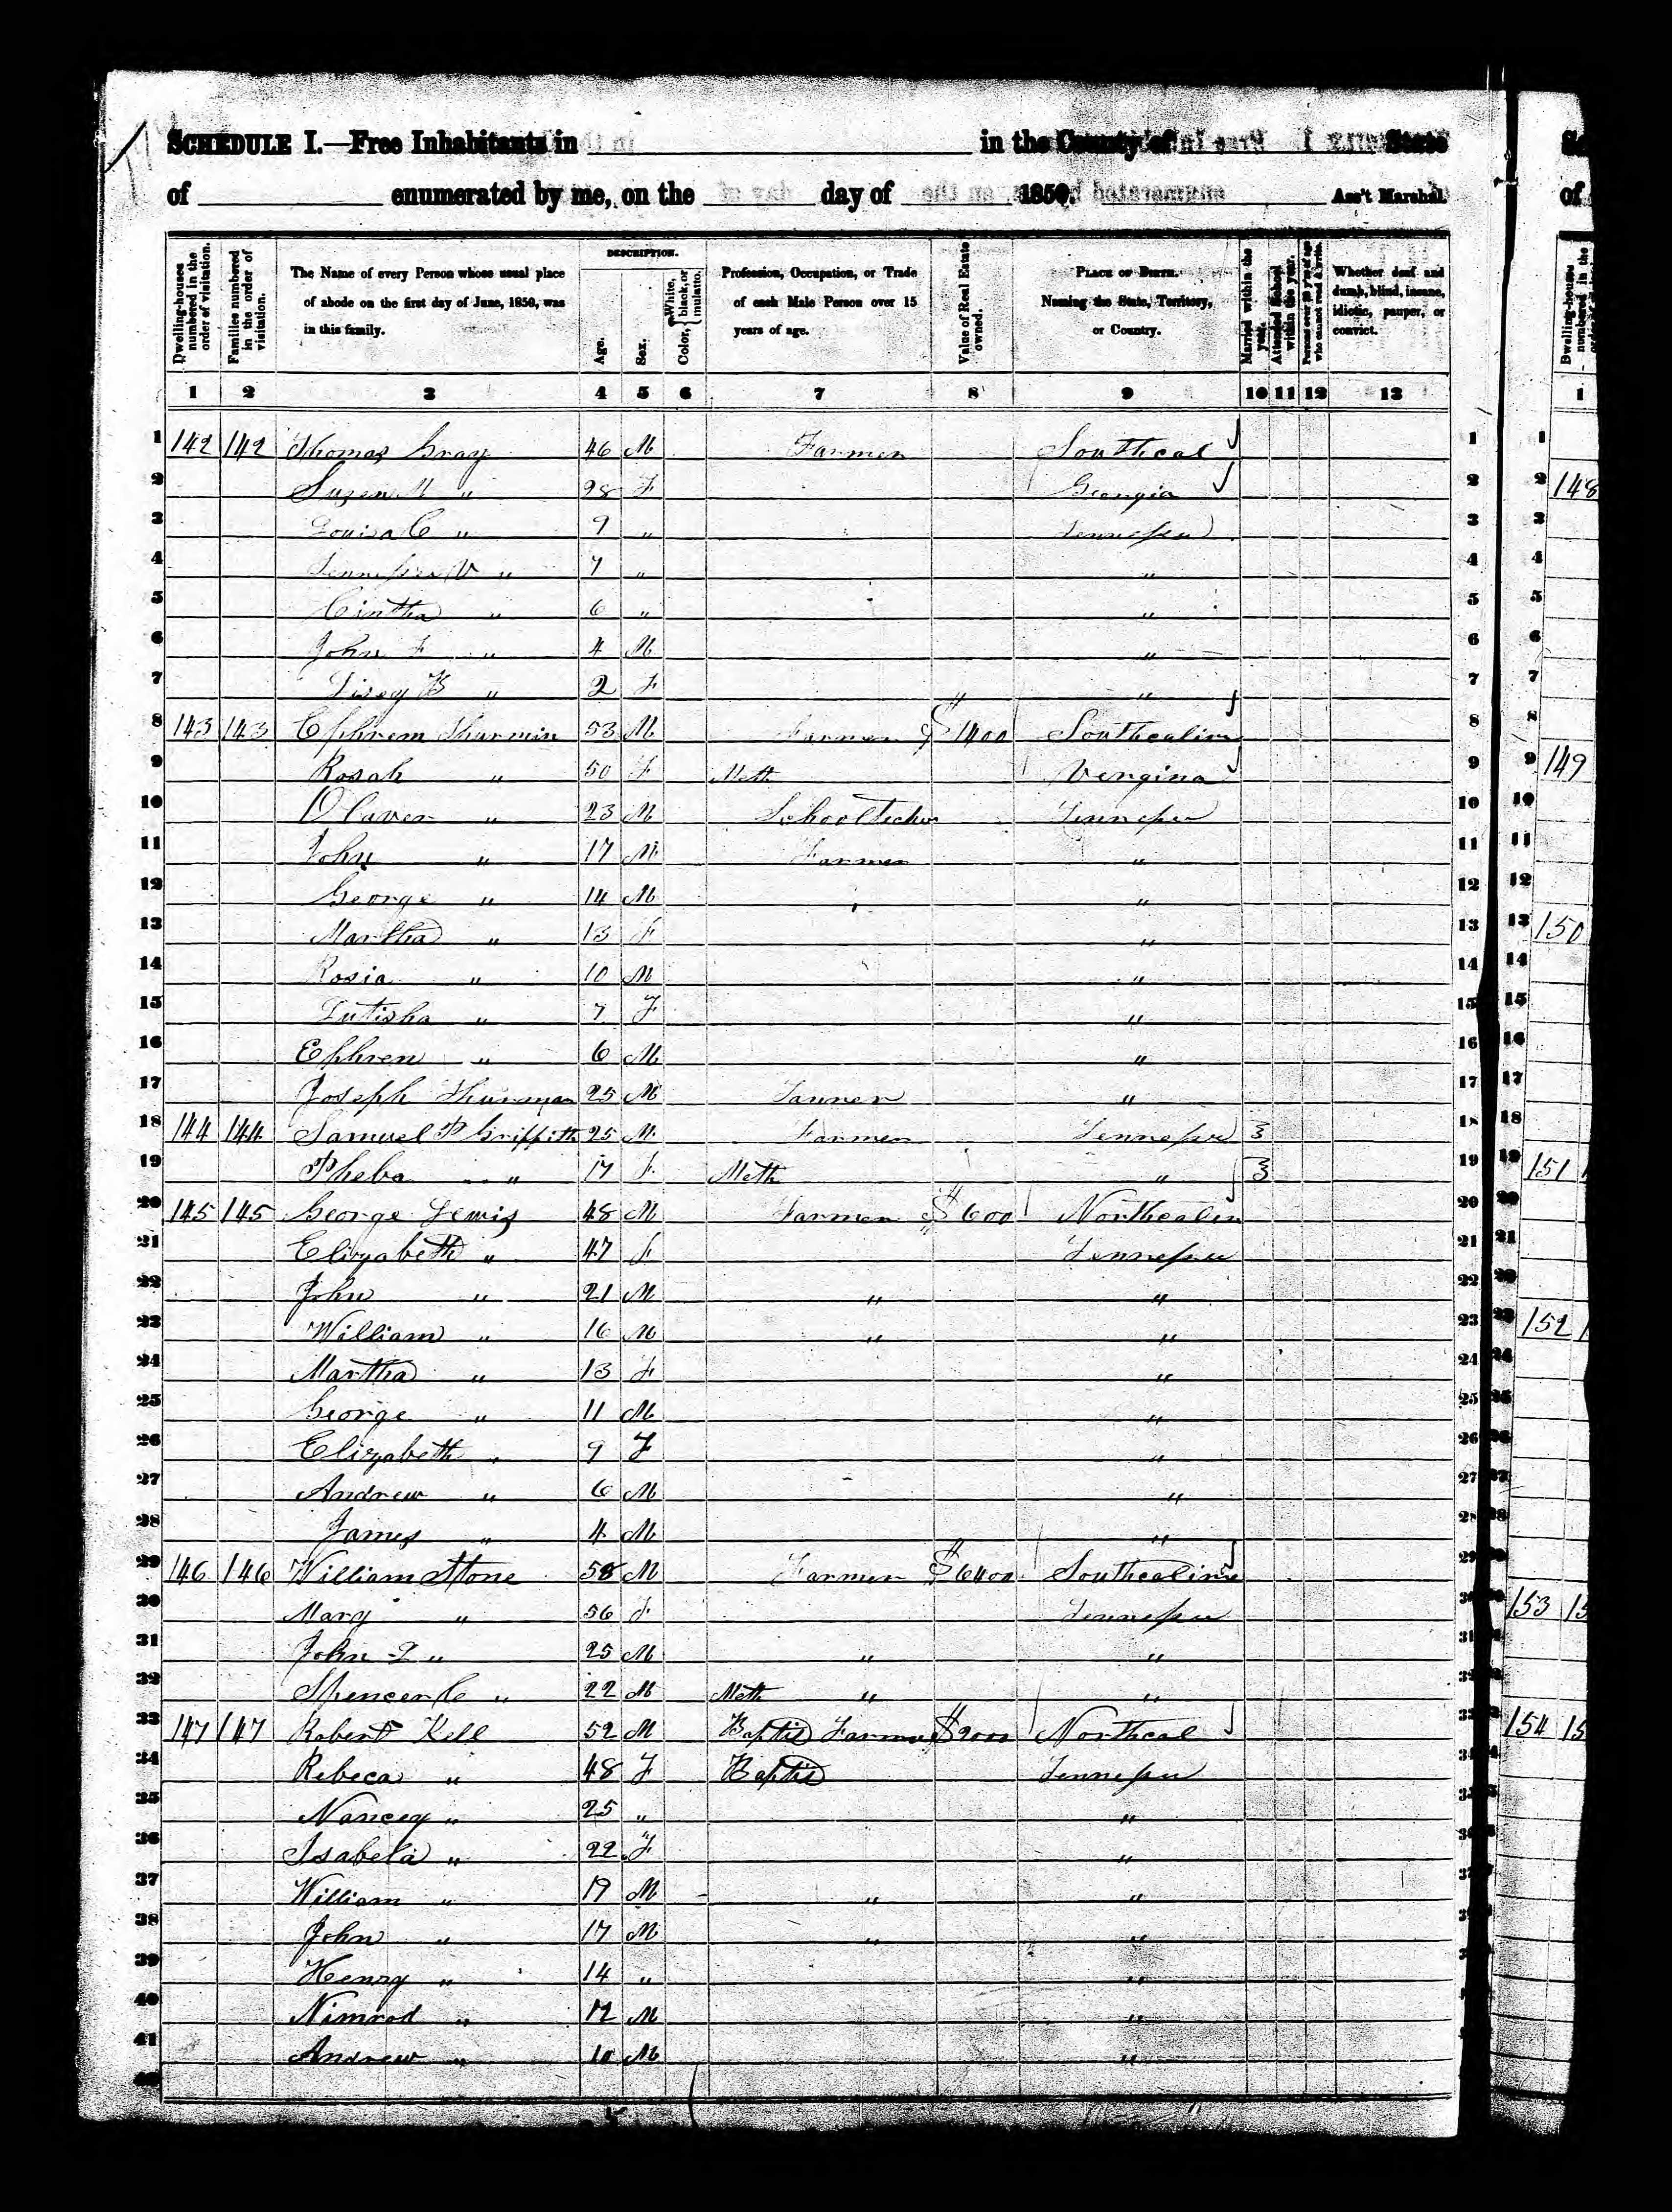 SCHEDULE I.—Free Inhabitants in in the County of State
of enumerated by me, on the day of 1850. Ass't Marshal.
Dwelling-houses numbered in the order of visitation.
Families numbered in the order of visitation.
The Name of every Person whose usual place of abode on the first day of June, 1850, was in this family.
DESCRIPTION.
Age.
Sex.
Color, White, black, or mulatto.
Profession, Occupation, or Trade of each Male Person over 15 years of age.
Value of Real Estate owned.
PLACE OF BIRTH. Naming the State, Territory, or Country.
Married within the year.
Attended School within the year.
Persons over 20 y'rs of age who cannot read & write.
Whether deaf and dumb, blind, insane, idiotic, pauper, or convict.
1 2 3 4 5 6 7 8 9 10 11 12 13
1 142 142 Thomas Gray 46 M Farmer Southcal 1
2 Suzen M " 28 F Georgia 2
3 Louisa C " 9 " Tennessee 3
4 " 7 " " 4
5 Cintha " 6 " " 5
6 John F " 4 M " 6
7 B " 2 F " 7
8 143 143 Ephrem Thurmin 53 M Farmer $1400 Southcalin 8
9 Rosah " 50 F Meth Vengina 9
10 Olaver " 23 M School Techer Tennessee 10
11 John " 17 M Farmer " 11
12 George " 14 M " 12
13 Martha " 13 F " 13
14 Rosia " 10 M " 14
15 Lutisha " 7 F " 15
16 Ephren " 6 M " 16
17 Joseph Thurman 25 M Tanner " 17
18 144 144 Samuel P Griffith 25 M Farmer Tennessee 3 18
19 Pheba " 17 F Meth " 3 19
20 145 145 George Lewis 48 M Farmer $600 Northcalin 20
21 Elizabeth " 47 F Tennessee 21
22 John " 21 M " " 22
23 William " 16 M " " 23
24 Martha " 13 F " 24
25 George " 11 M " 25
26 Elizabeth " 9 F " 26
27 Andrew " 6 M " 27
28 James " 4 M " 28
29 146 146 William Stone 58 M Farmer $6400 Southcalina 29
30 Mary " 56 F Tennessee
31 John " 25 M " " 31
32 Spencer C " 22 M Meth " "
33 147 147 Robert Kell 52 M Baptis Farmer $2000 Northcal
34 Rebeca " 48 F Baptis Tennessee
35 Nancey " 25 " "
36 Isabela " 22 F "
37 William " 19 M " "
38 John " 17 M " "
39 Henry " 14 " "
40 Nimrod " 12 M "
41 Andrew " 10 M "
42
of
Dwelling-houses numbered in the
1
148
149
150
151
152
153
154